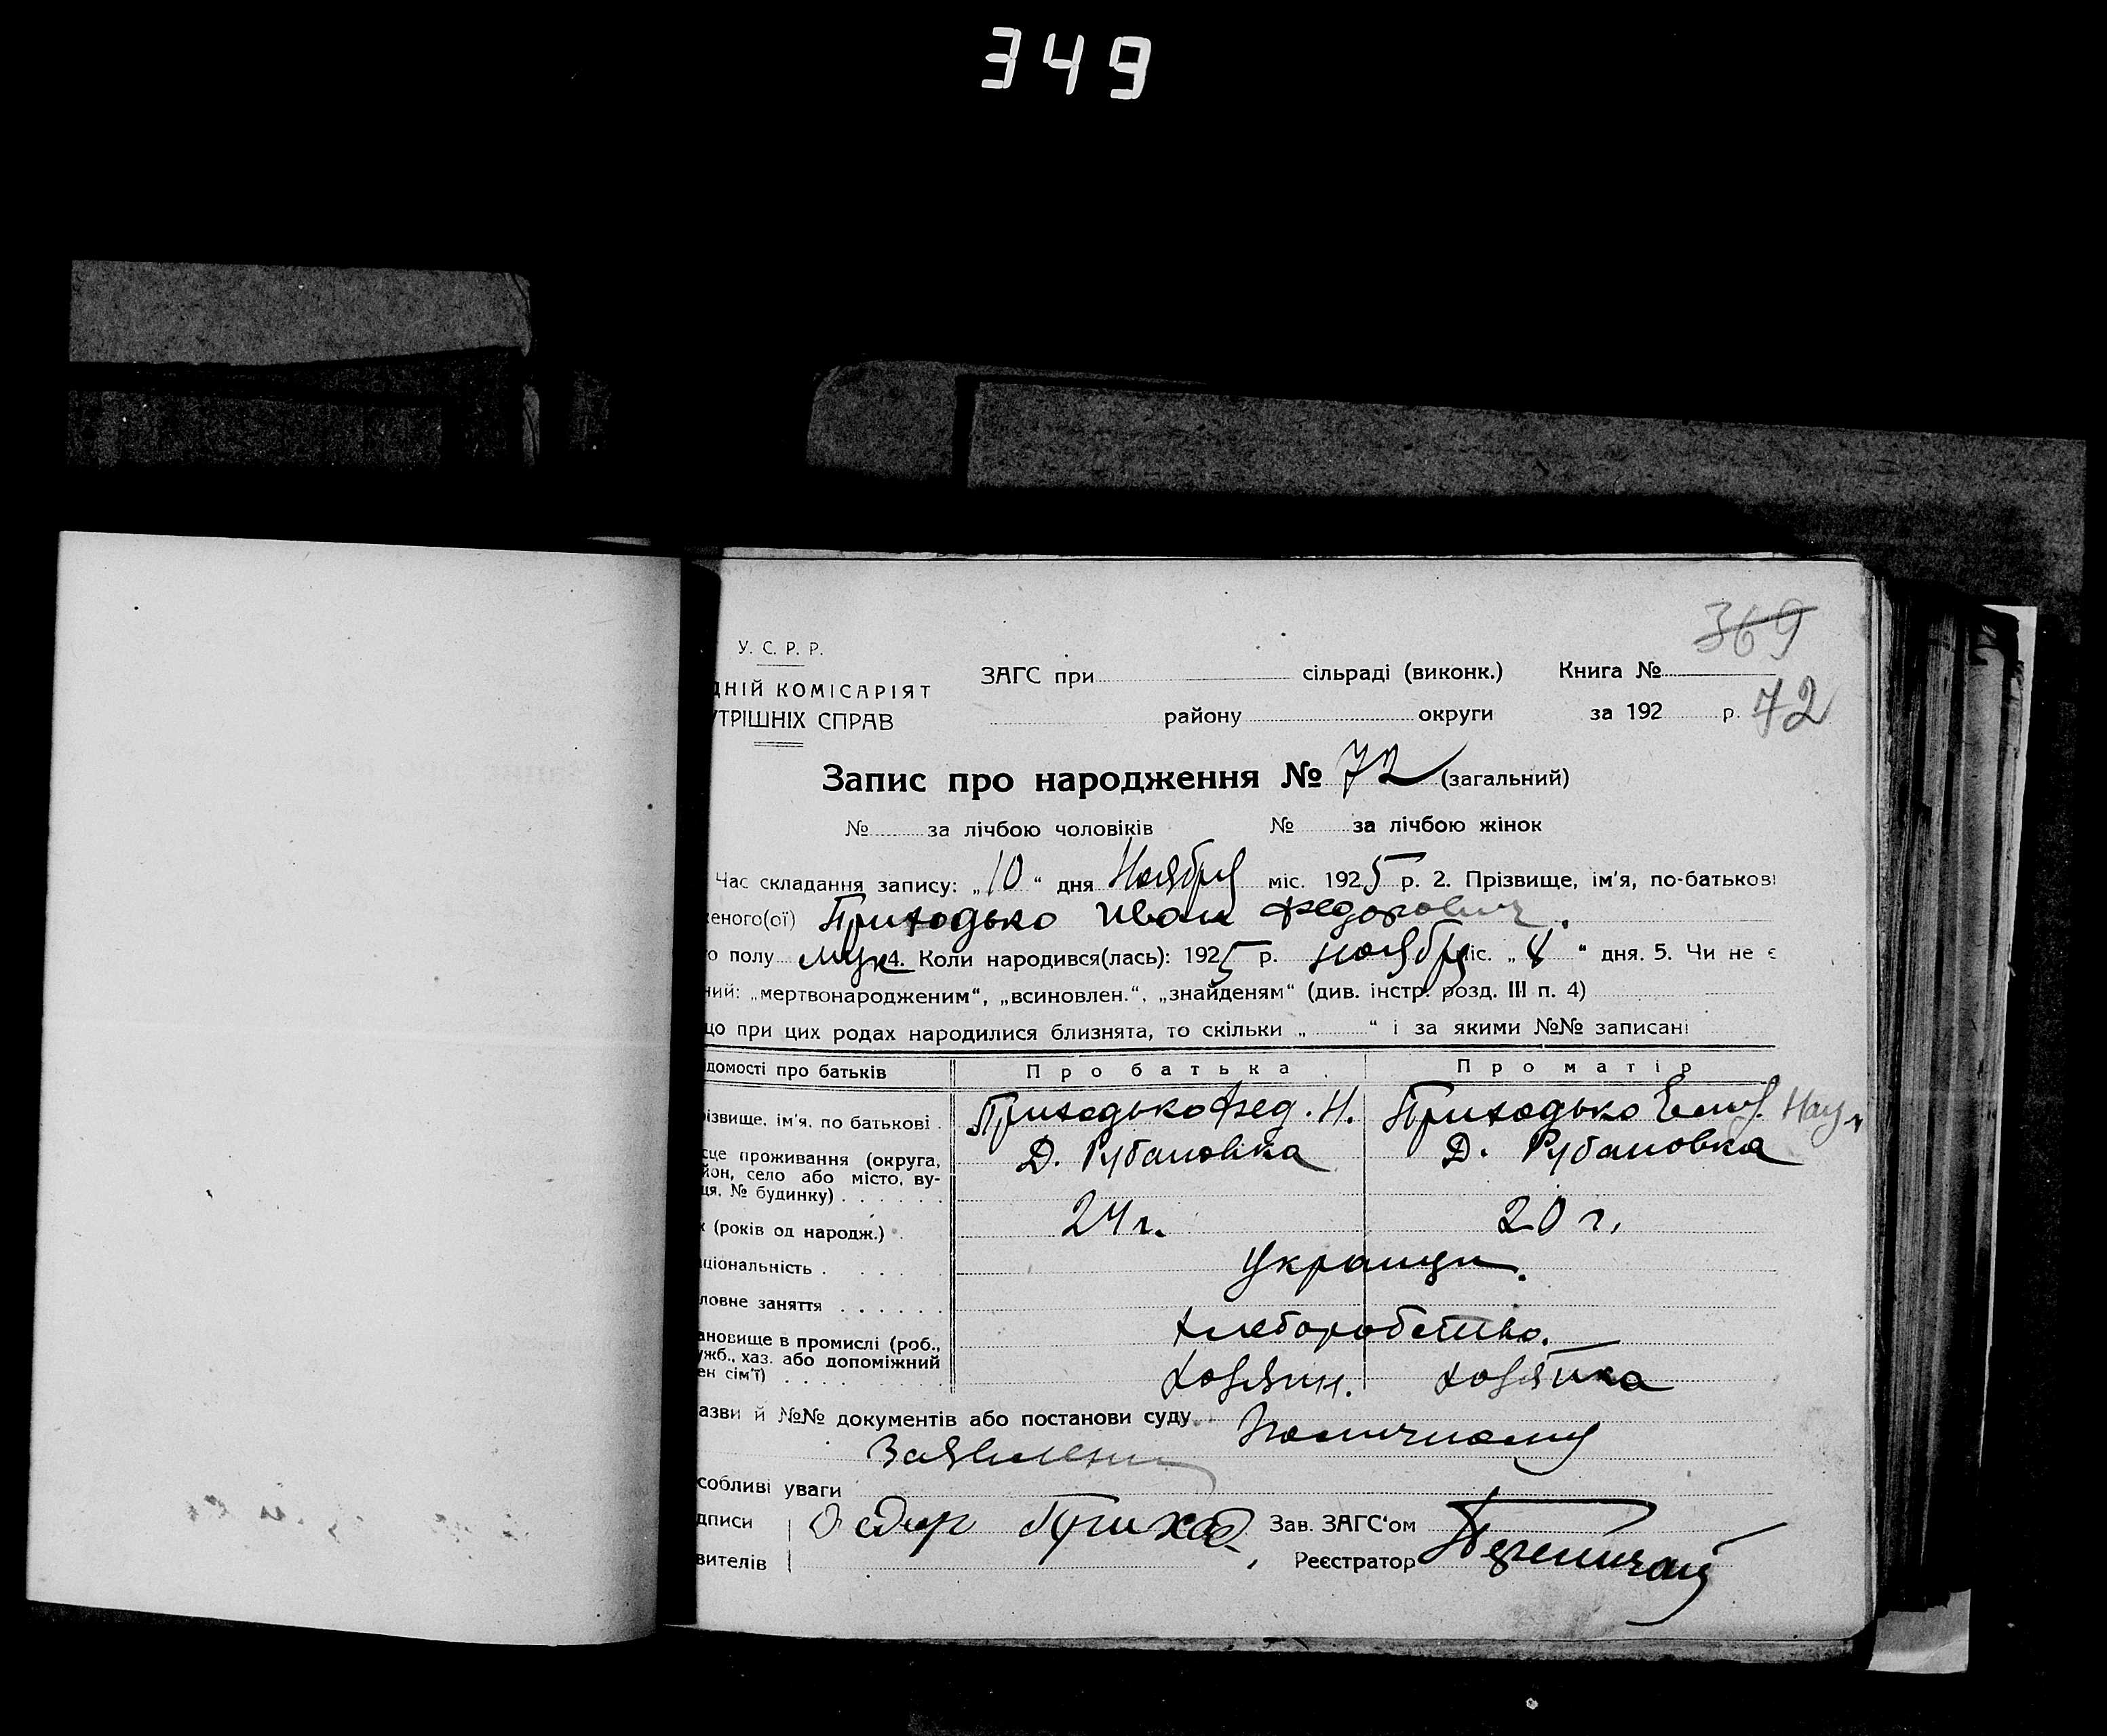 349
369
У. С. Р. Р.
ЗАГС при сільраді (виконк.) Книга №
ДНІЙ КОМІСАРІЯТ
району округи за 192 р. 72
УТРІШНІХ СПРАВ
Запис про народження № 72 (загальний)
№ за лічбою чоловіків № за лічбою жінок
Час складання запису: „10“ дня Ноября міс. 1925 р. 2. Прізвище, ім'я, по-батькові
женого(ої) Приходько Иван Федорович.
о полу муж 4. Коли народився(лась): 1925 р. ноября міс. „8“ дня. 5. Чи не є
ний: „мертвонародженим“, „всиновлен.“, „знайденям“ (див. інстр. розд. III п. 4)
що при цих родах народилися близнята, то скільки „ “ і за якими №№ записані
ідомості про батьків Про батька Про матір
різвище, ім'я, по батькові . Приходько Фед. Н. Приходько
сце проживання (округа, Д. Рубановка Д. Рубановка
йон, село або місто, ву-
ця, № будинку)
к (років од народж.) 24 г. 20 г.
ціональність . Украинци.
ловне заняття хлеборобство.
ановище в промислі (роб.,
ужб., хаз. або допоміжний
ен сім'ї) хозяин. хозяйка
азви й №№ документів або постанови суду.
Заявлени
собливі уваги
дписи Федор Приход Зав. ЗАГС'ом
вителів Реєстратор